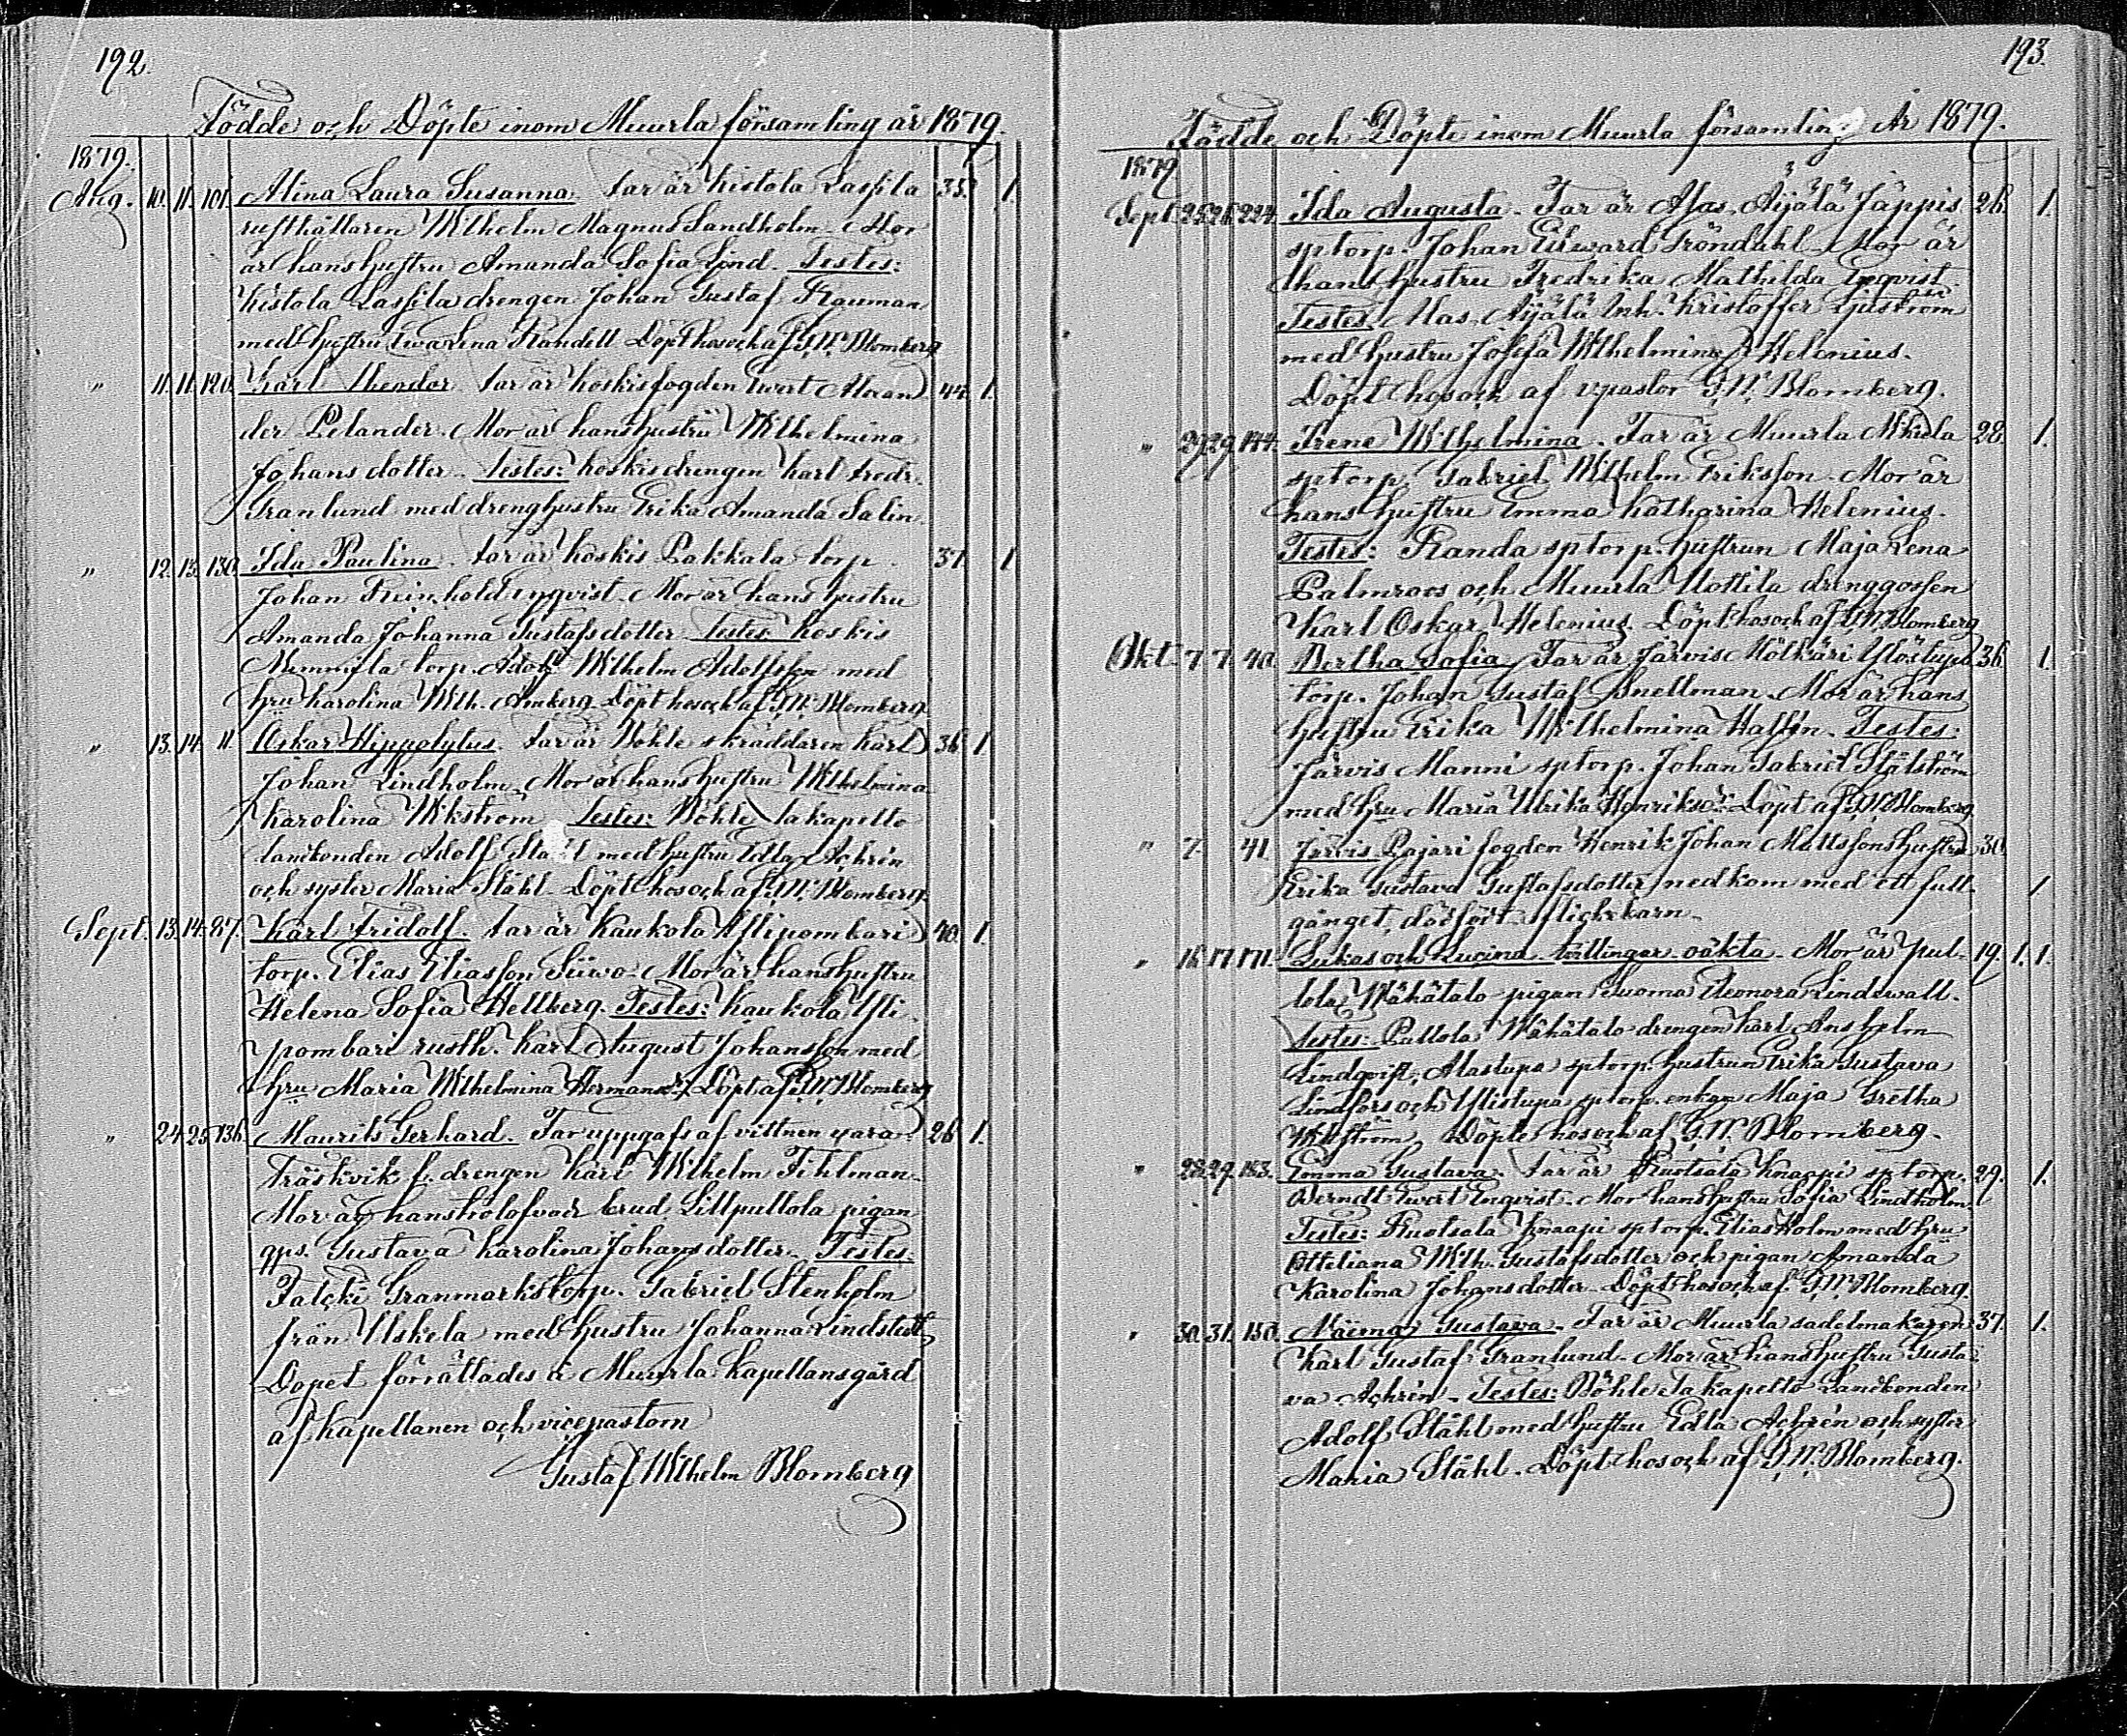 192.
Födde och Döpte inom Muurla församling år 1879.
1879.
Aug. 10. 11. 101. Alina Laura Susanna. Far är Kistola Lassila 35. 1.
rusthållaren Wilhelm Magnus Sandholm. Mor
är hans hustru Amanda Sofia Lind. Testes:
Kistola Lassila drengen Johan Gustaf Rauman
med hustru Ewa Lena Randell Döpt hos och af G.W. Blomberg
" 11. 11. 120. Karl Theodor. Far är Koskis fogden Ewert Alexan 44. 1.
der Pelander. Mor är hans hustru Wilhelmina
Johans dotter. Testes: Koskis drengen Karl Fredr.
Granlund med dreng hustru Erika Amanda Salin.
" 12. 13. 130. Ida Paulina. Far är Koskis Pakkala torp. 37. 1
Johan Reinhold Enqvist. Mor är hans hustru
Amanda Johanna Gustafsdotter Testes: Koskis
torp. Adolf Wilhelm Adolfsson med
hru Karolina Wilh. Amberg. Döpt hos och af G.W. Blomberg.
" 13. 14. 11. Oskar Hippolytus. Far är Böhle skräddaren Karl 36. 1.
Johan Lindholm. Mor är hans hustru Wilhelmina
Karolina Wikström Testes: Böhle Takapelto
landbonden Adolf Ståhl med hustru Edla Achrén
och syster Maria Ståhl. Döpt hos och af G.W. Blomberg.
Sept. 13. 14. 87. Karl Fridolf. Far är Kaukola Ylipombari 40. 1.
torp. Elias Eliasson Siiwo. Mor är hans hustru
Helena Sofia Hellberg. Testes: Kaukola Yli
pombari rusth. Karl August Johansson med
hru Maria Wilhelmina Hermansd:r Döpt af G.W. Blomberg
" 24. 25. 136. Maurits Gerhard. Far uppgafs af vittnen vara 26. 1.
Träskvik f. drengen Karl Wilhelm Fihlman.
Mor är hans trolofvade brud Lillpullola pigan
qps. Gustava Karolina Johansdotter. Testes:
Falcki Granmarks torp. Gabriel Stenholm
från Uskela med hustru Johanna Lindstedt
Dopet förrättades i Muurla Kapellansgård
af Kapellanen och vicepastorn
Gustaf Wilhelm Blomberg
193.
Födde och Döpte inom Muurla församling År 1879.
1879
Sept. 25. 26. 224. Ida Augusta. Far är Alas Äijälä Jäppis 26. 1.
sptorp. Johan Edward Tröndahl. Mor är
hans hustru Fredrika Mathilda Enqvist.
Testes: Alas Äijälä Inh. Kristoffer Ljuström
med hustru Josefa Wilhelmina Helenius.
Döpt hos och af v pastor G.W. Blomberg.
" 29. 29. 144. Irene Wilhelmina. Far är Muurla Mikola 28. 1.
sptorp. Gabriel Wilhelm Eriksson. Mor är
hans hustru Emma Katharina Helenius.
Testes: Randa sptorp. hustrun Maja Lena
Palmroos och Muurla Uottila drenggossen
Karl Oskar Helenius. Döpt hos och af G.W. Blomberg
Okt. 7. 7. 40. Bertha Sofia. Far är Järvis Mölkäri Ylöstupa 36. 1.
torp. Johan Gustaf Snellman. Mor är hans
hustru Erika Wilhelmina Halfén. Testes:
Järvis Manni sptorp. Johan Gabriel Stålström
med hru Maria Ulrika Henriksd:r Döpt af G.W. Blomberg
" 7. 41. Järvis Pajari fogden Henrik Johan Mattssons hustru 30.
Erika Gustava Gustafsdotter nedkom med ett full- 1
gånget, dödfödt flickebarn.
" 16. 17. 171. Lukas och Lucina tvillingar oäkta. Mor är Pul- 19. 1. 1.
lola Wähätalo pigan Suoma Eleonora Lindewall.
Testes: Pullola Wähätalo drengen Karl Anshelm
Lindqvist, Alastupa sptorp. hustrun Erika Gustava
Lindfors och Ylistupa sptorp. enkan Maja Gretha
Wikström Döpte hos och af G.W. Blomberg.
" 28. 29. 153. Emma Gustava. Far är Ruotsala Knaapi sptorp. 29. 1.
Berndt Ewert Enqvist. Mor hans hustru Sofia Lindholm.
Testes: Ruotsala Knaapi sptorp. Elias Holm med hru
Otteliana Wilh. Gustafsdotter och pigan Amanda
Karolina Johansdotter. Döpt hos och af G.W. Blomberg.
" 30. 31. 150. Naima Gustava. Far är Muurla sadelmakaren 37. 1.
Karl Gustaf Granlund. Mor är hans hustru Gusta-
va Achrén. Testes: Böhle Takapelto Landbonden
Adolf Ståhl med hustru Edla Achrén och syster
Maria Ståhl. Döpt hos och af G.W. Blomberg.